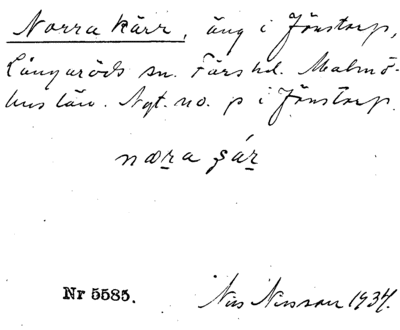 Norra kärr, äng i Jönstorp,
Långaröds sn. Färs hd. Malmö-
hus län. Ägt. no. p i Jönstorp.
næra ʂár
Nr 5585. Nils Nilsson 1934.